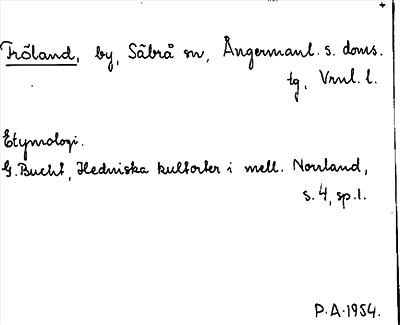 Fröland, by, Säbrå sn, Ångermanl. s. doms.
tg, Vrnl. l.
Etymologi.
G. Bucht, Hedniska kultorter i mell. Norrland,
s. 4, sp. 1.
P.A. 1954.